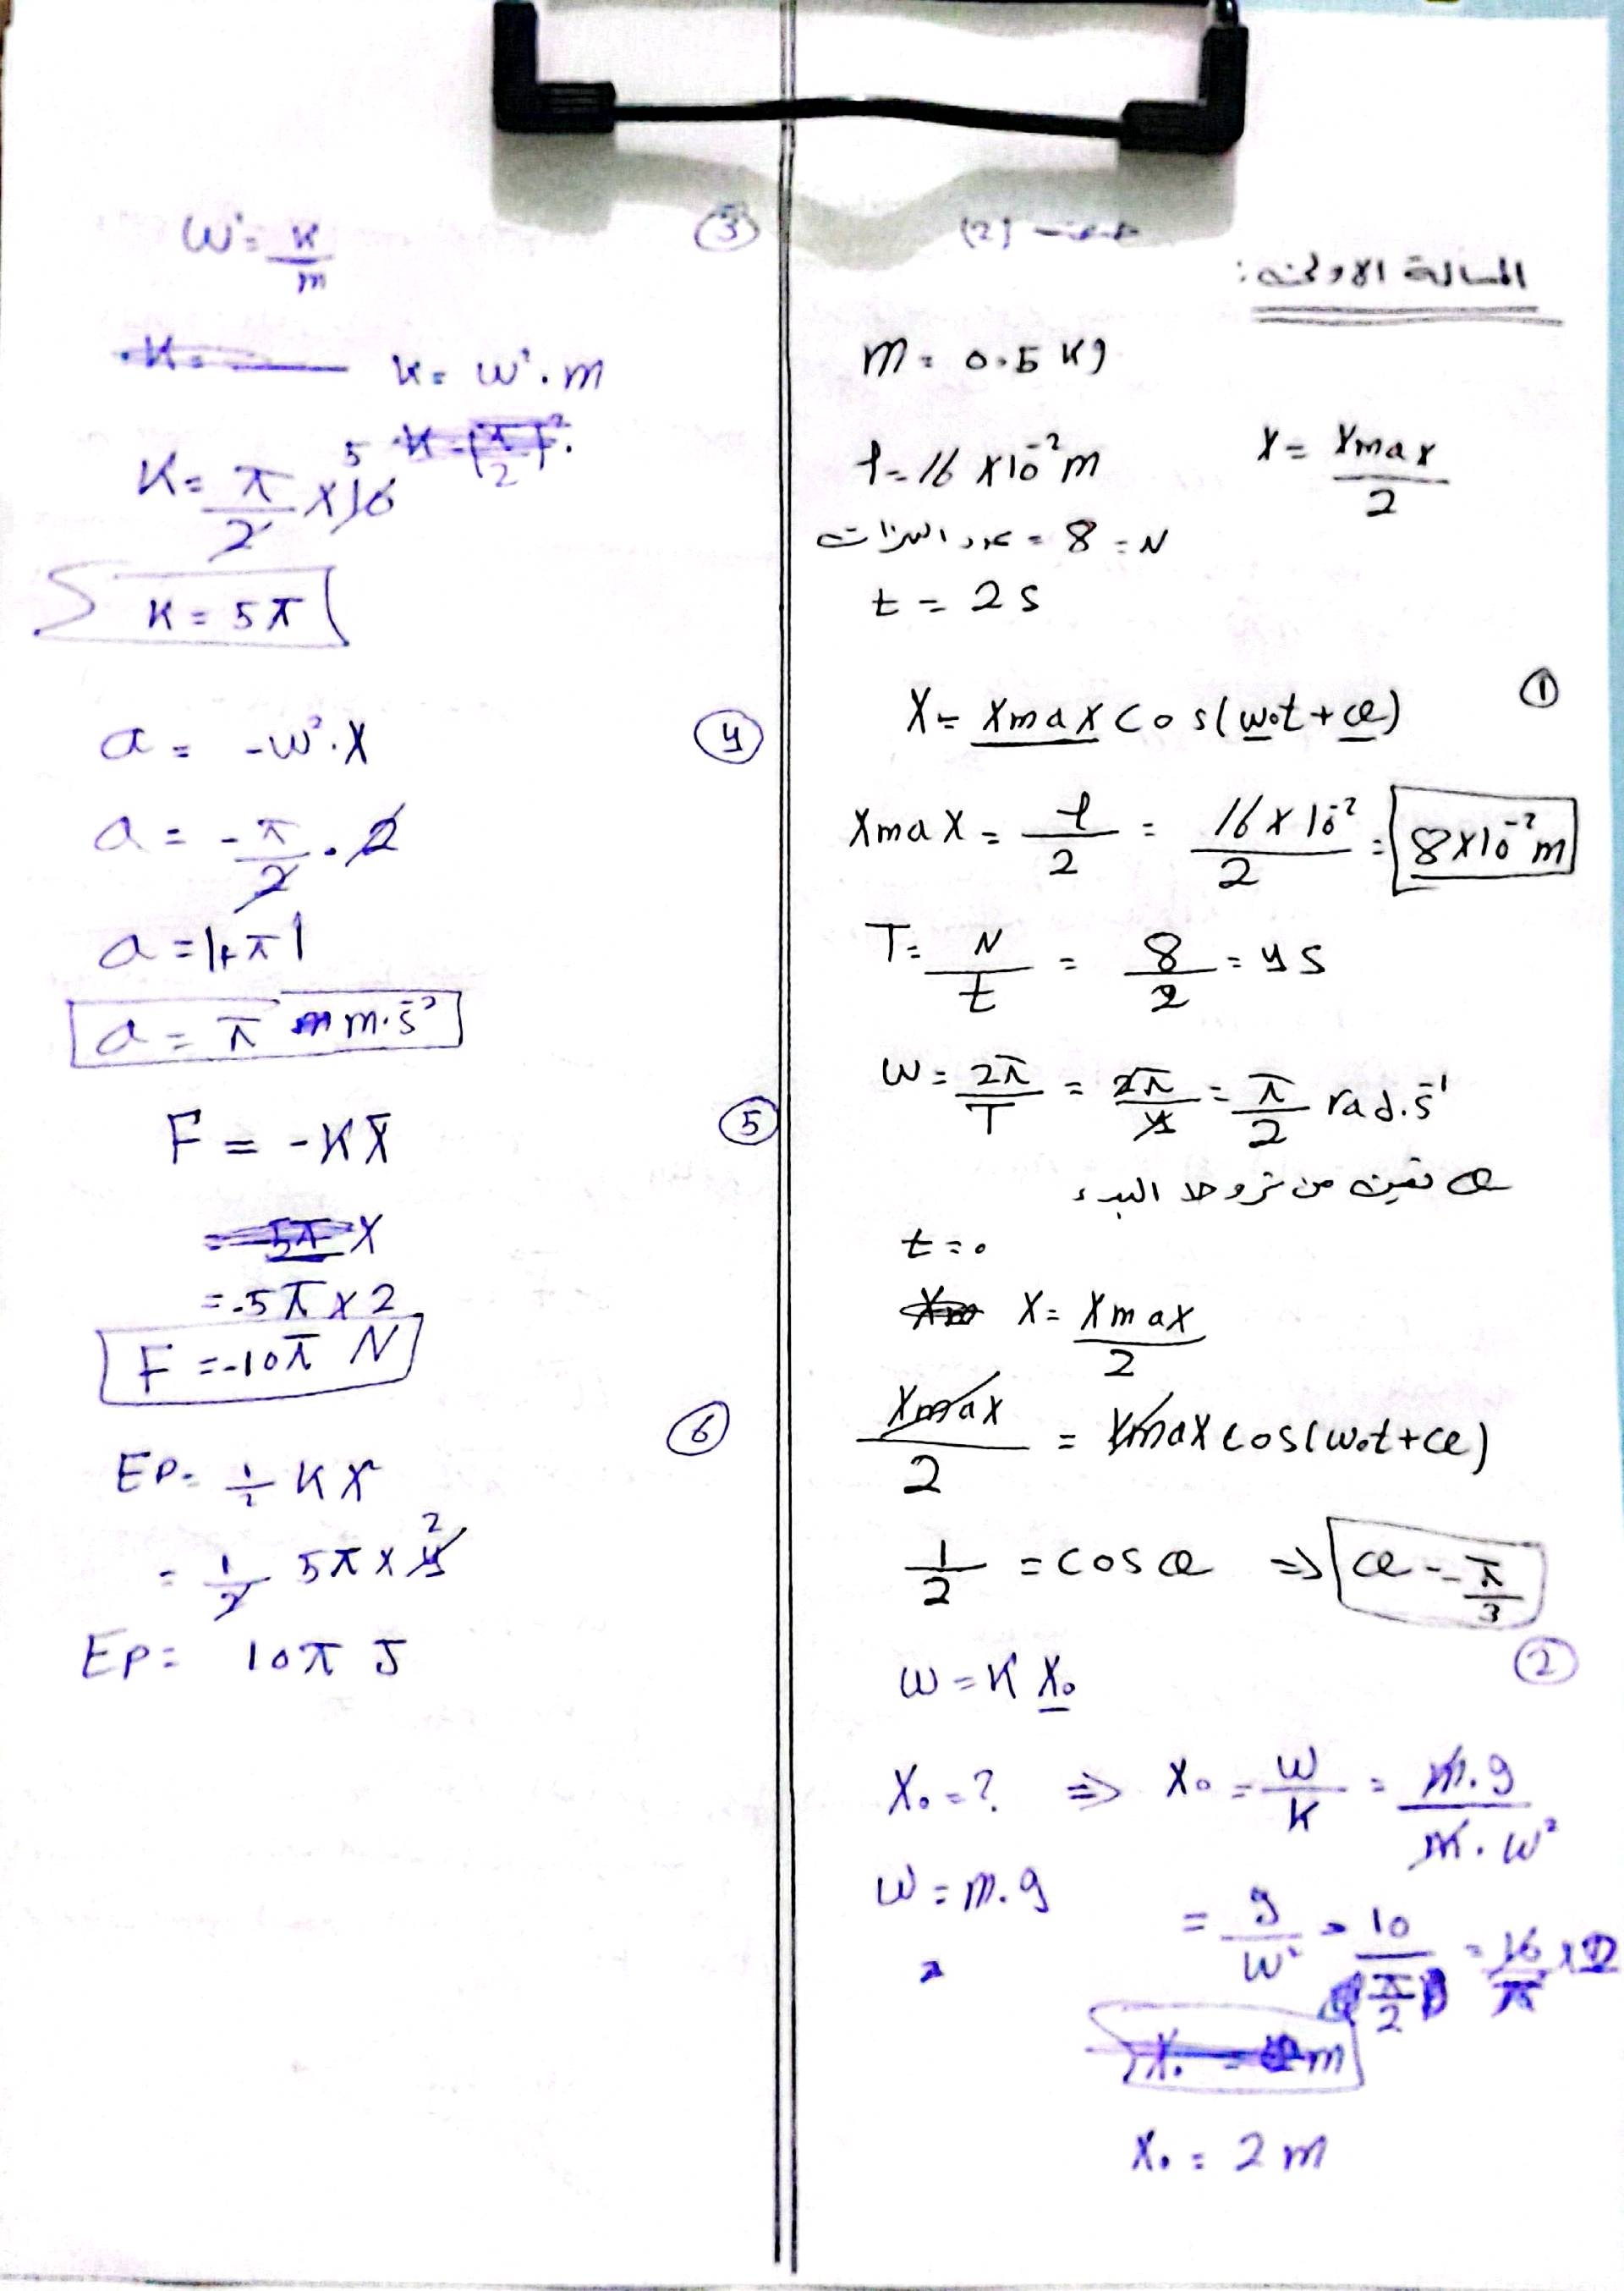 المسالة الاولى:
m = 0.5 Kg
ℓ = 16 × 10⁻² m
X = Xmax / 2
عدد الهزات = 8 = N
t = 2 s
①
X = Xmax cos(ω₀t + φ)
Xmax = ℓ / 2 = 16 × 10⁻² / 2 = 8 × 10⁻² m
T = N / t = 8 / 2 = 4 s
ω = 2π / T = 2π / 4 = π / 2 rad.s⁻¹
φ نعين من شروط البدء
t = 0
X = Xmax / 2
Xmax / 2 = Xmax cos(ω₀t + φ)
1 / 2 = cos φ ⇒ φ = - π / 3
②
W = K X₀
X₀ = ? ⇒ X₀ = W / K = m.g / m.ω²
W = m.g
= g / ω² = 10 / (π / 2)
X₀ = 2 m
③
ω² = K / m
K = ω² . m
K = π / 2 × 10 5
K = 5π
4
a = -ω² . X
a = - π / 2 . 2
a = |+π|
a = π m.s⁻²
⑤
F = -K X̄
= -5π × 2
F = -10π N
⑥
EP = 1 / 2 K X²
= 1 / 2 5π × 4 2
EP = 10π J